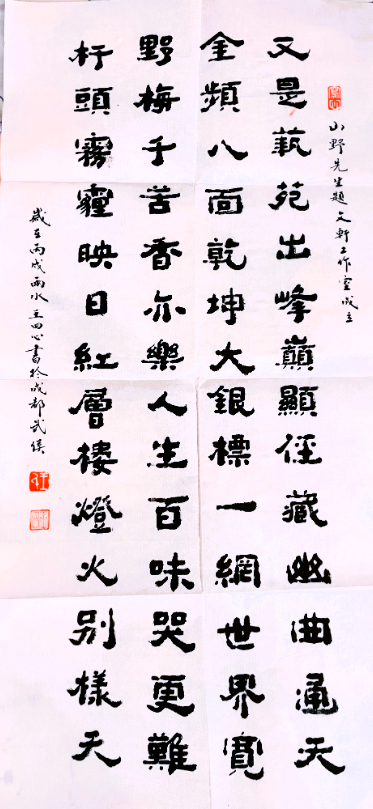 山野先生題文軒工作室成立
又是萟苑出峰巔顯徑藏幽曲通天
金頻八面乾坤大銀標一網世界寬
野梅千苦香亦樂人生百味哭更難
杆頭霧霾映日紅層楼燈火别樣天
歲在丙戌雨水王四心書於成都武侯